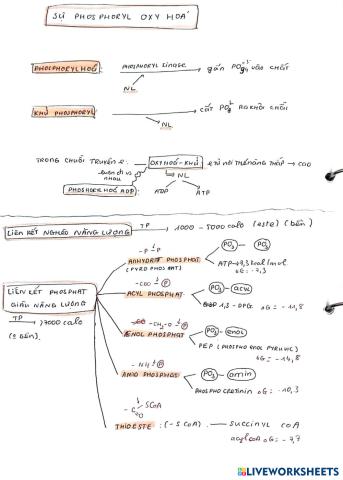 SỰ PHOSPHORYL OXY HOÁ
PHOSPHORYL HOÁ PHOSPHORYL KINASE gắn PO₄³⁻ vào chất
NL
KHỬ PHOSPHORYL cắt PO₄³⁻ ra khỏi chất
NL
TRONG CHUỖI TRUYỀN e: OXY HOÁ - KHỬ e từ nơi thế năng thấp → cao
nhau NL
PHOSPHORYL HOÁ ADP ADP ATP
LIÊN KẾT NGHÈO NĂNG LƯỢNG TP 1000 - 5000 calo (este) (bền)
- P ~ P
ANHYDRIT PHOSPHAT PO₃ - PO₃
(PYROPHOSPHAT) ATP → 7,3 kcal/mol
ΔG = -7,3
LIÊN KẾT PHOSPHAT GIÀU NĂNG LƯỢNG
- COO ~ P
ACYL PHOSPHAT PO₃ - acyl
1,3 - DPG ΔG = -11,8
TP > 7000 calo
(± bền)
- CH₂ - O ~ P
ENOL PHOSPHAT PO₃ - enol
PEP (PHOSPHO ENOL PYRUVIC)
ΔG = -14,8
- NH ~ P
AMID PHOSPHAT PO₃ - amin
PHOSPHO CREATININ ΔG = -10,3
- C SCoA
O
THIOESTE : (- S CoA) SUCCINYL CoA
acyl CoA ΔG = -7,7
LIVEWORKSHEETS